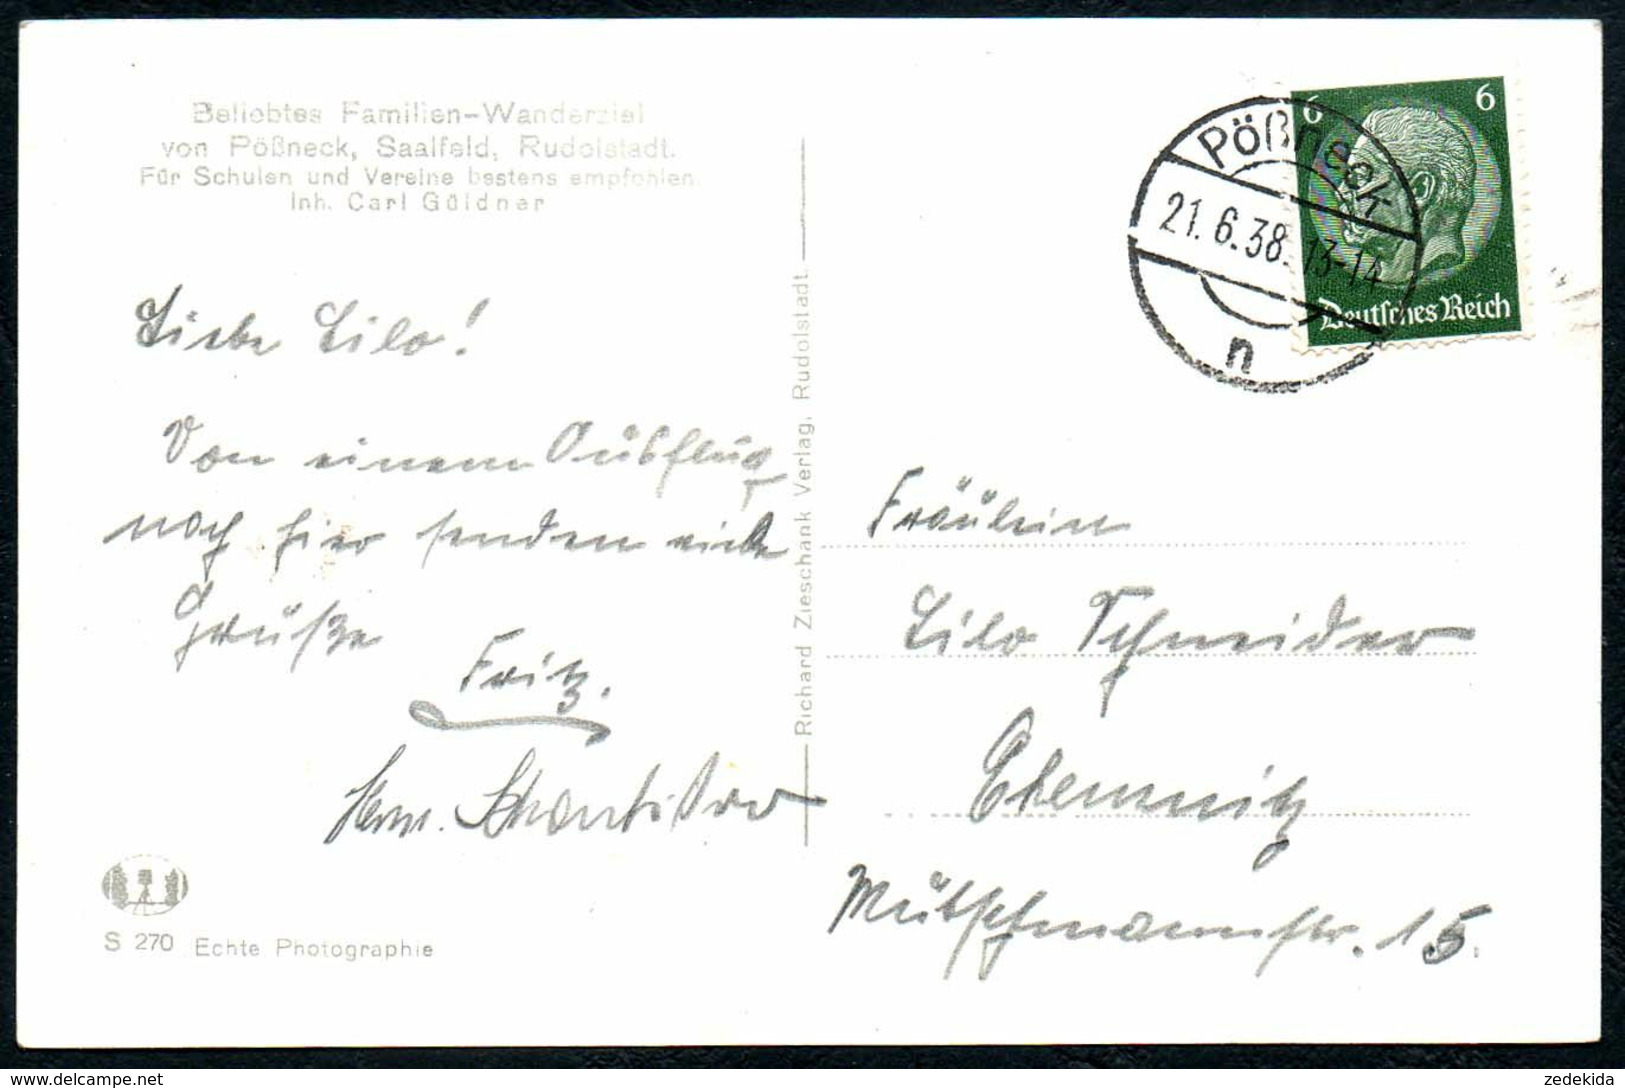 Beliebtes Familien-Wanderziel
von Pößneck, Saalfeld, Rudolstadt.
Für Schulen und Vereine bestens empfohlen.
Inh. Carl Güldner
Liebe Lilo!
Von einem Ausflug
nach hier senden viele
Grüße
Fritz.
S 270 Echte Photographie
Richard Zieschank Verlag, Rudolstadt.
Pößneck
21.6.38. 13-14
n
6 6
Deutsches Reich
Fräulein
Lilo Schneider
Chemnitz
15.
zedekida